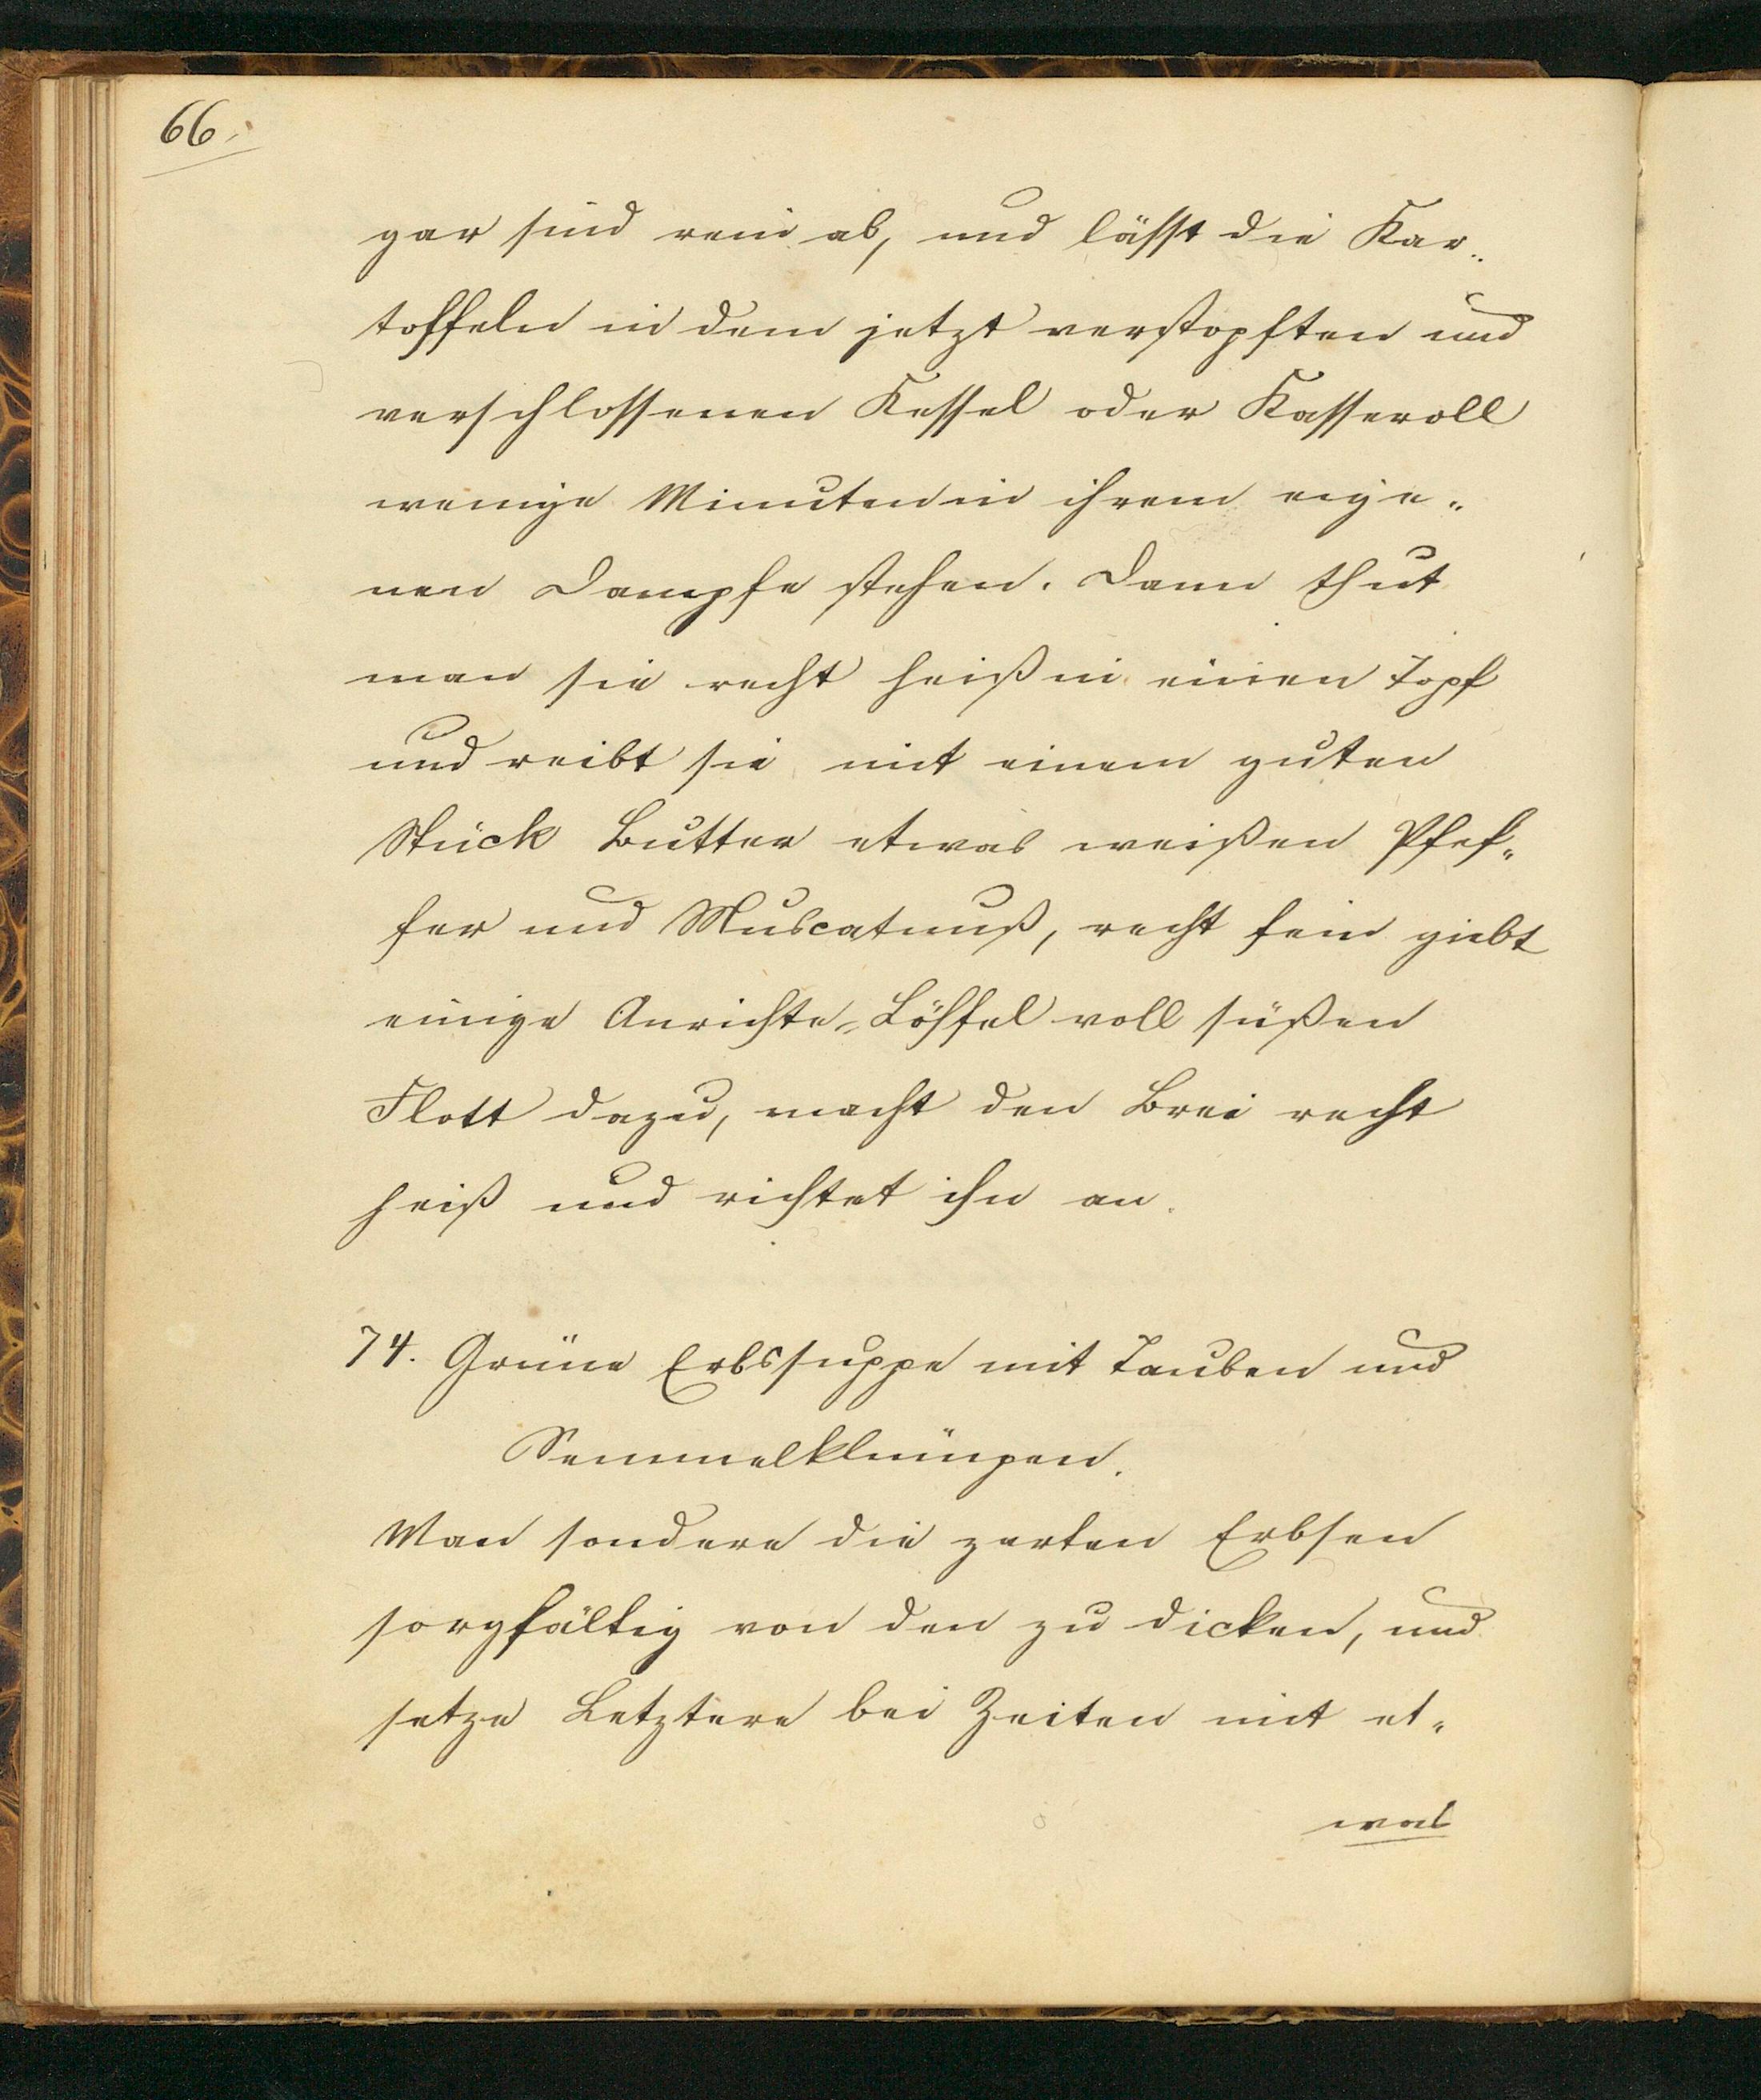 66.
gar sind rein ab, und lässt die Kar-
toffeln in dem jetzt verstopften und
verschlossenen Kessel oder Kasseroll
wenige Minuten in ihrem eige-
nen Dampfe stehen. Dann thut
man sie recht heiß in einen Topf
und reibt sie mit einem guten
Stück Butter etwas weißen Pfef-
fer und Muscatnuß, recht fein giebt
einige Anrichte-Löffel voll süßen
Flott dazu, macht den Brei recht
heiß und richtet ihn an.
74. Grüne Erbssuppe mit Tauben und
Semmelklümpen.
Man sondere die zarten Erbsen
sorgfältig von den zu dicken, und
setze Letztere bei Zeiten mit et-
was